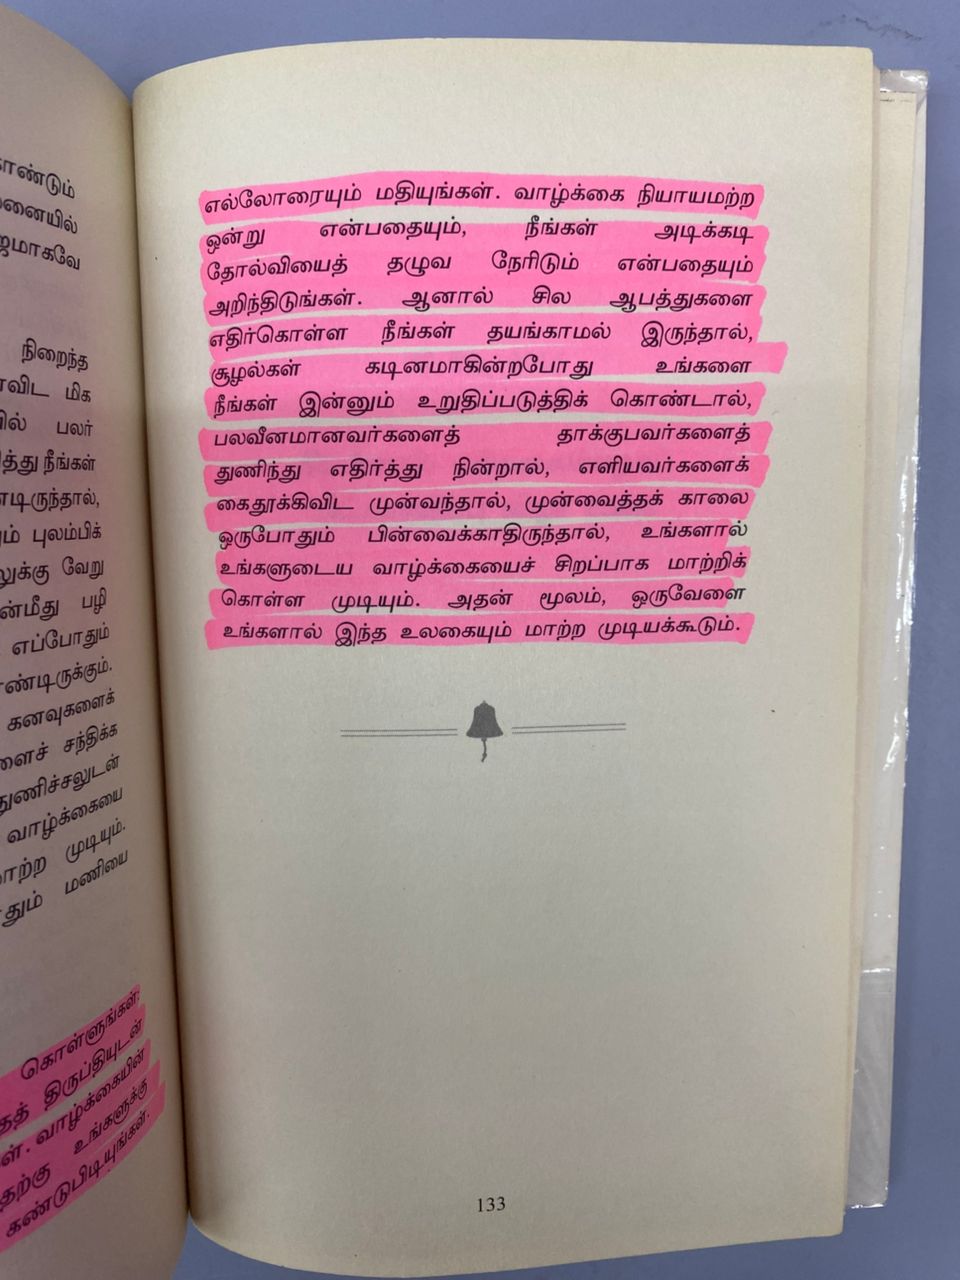 காண்டும்
னையில்
ஜமாகவே
நிறைந்த
ளவிட மிக
யில் பலர்
த்து நீங்கள்
ண்டிருந்தால்,
ம் புலம்பிக்
லுக்கு வேறு
ன்மீது பழி
எப்போதும்
ண்டிருக்கும்.
கனவுகளைக்
ளைச் சந்திக்க
துணிச்சலுடன்
வாழ்க்கையை
மாற்ற முடியும்.
தும் மணியை
கொள்ளுங்கள்:
தைத் திருப்தியுடன்
ள். வாழ்க்கையின்
தற்கு உங்களுக்கு
கண்டுபிடியுங்கள்.
எல்லோரையும் மதியுங்கள். வாழ்க்கை நியாயமற்ற
ஒன்று என்பதையும், நீங்கள் அடிக்கடி
தோல்வியைத் தழுவ நேரிடும் என்பதையும்
அறிந்திடுங்கள். ஆனால் சில ஆபத்துகளை
எதிர்கொள்ள நீங்கள் தயங்காமல் இருந்தால்,
சூழல்கள் கடினமாகின்றபோது உங்களை
நீங்கள் இன்னும் உறுதிப்படுத்திக் கொண்டால்,
பலவீனமானவர்களைத் தாக்குபவர்களைத்
துணிந்து எதிர்த்து நின்றால், எளியவர்களைக்
கைதூக்கிவிட முன்வந்தால், முன்வைத்தக் காலை
ஒருபோதும் பின்வைக்காதிருந்தால், உங்களால்
உங்களுடைய வாழ்க்கையைச் சிறப்பாக மாற்றிக்
கொள்ள முடியும். அதன் மூலம், ஒருவேளை
உங்களால் இந்த உலகையும் மாற்ற முடியக்கூடும்.
133